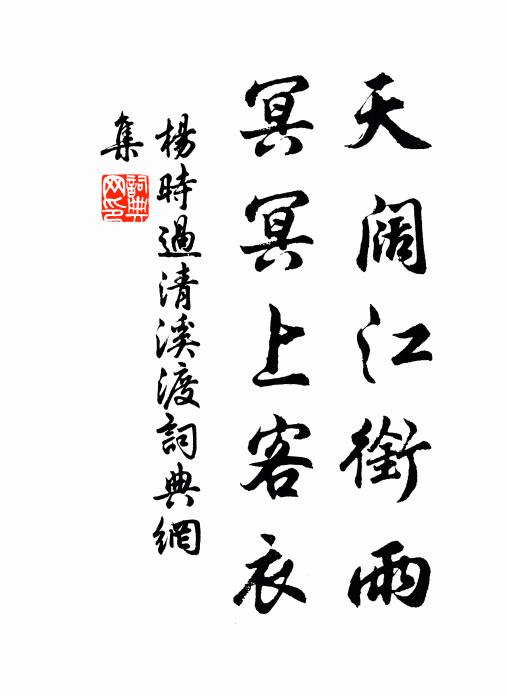 天阔江銜雨
冥冥上客衣
楊時過清溪渡詞典網
集
詞典网印